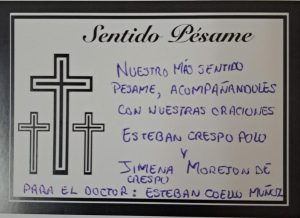 Sentido Pésame
NUESTRO MÁS SENTIDO
PESAME, ACOMPAÑANDOLES
CON NUESTRAS ORACIONES
ESTEBAN CRESPO POLO
Y
JIMENA MORETON DE
CRESPO
PARA EL DOCTOR: ESTEBAN COELLO MUÑOZ